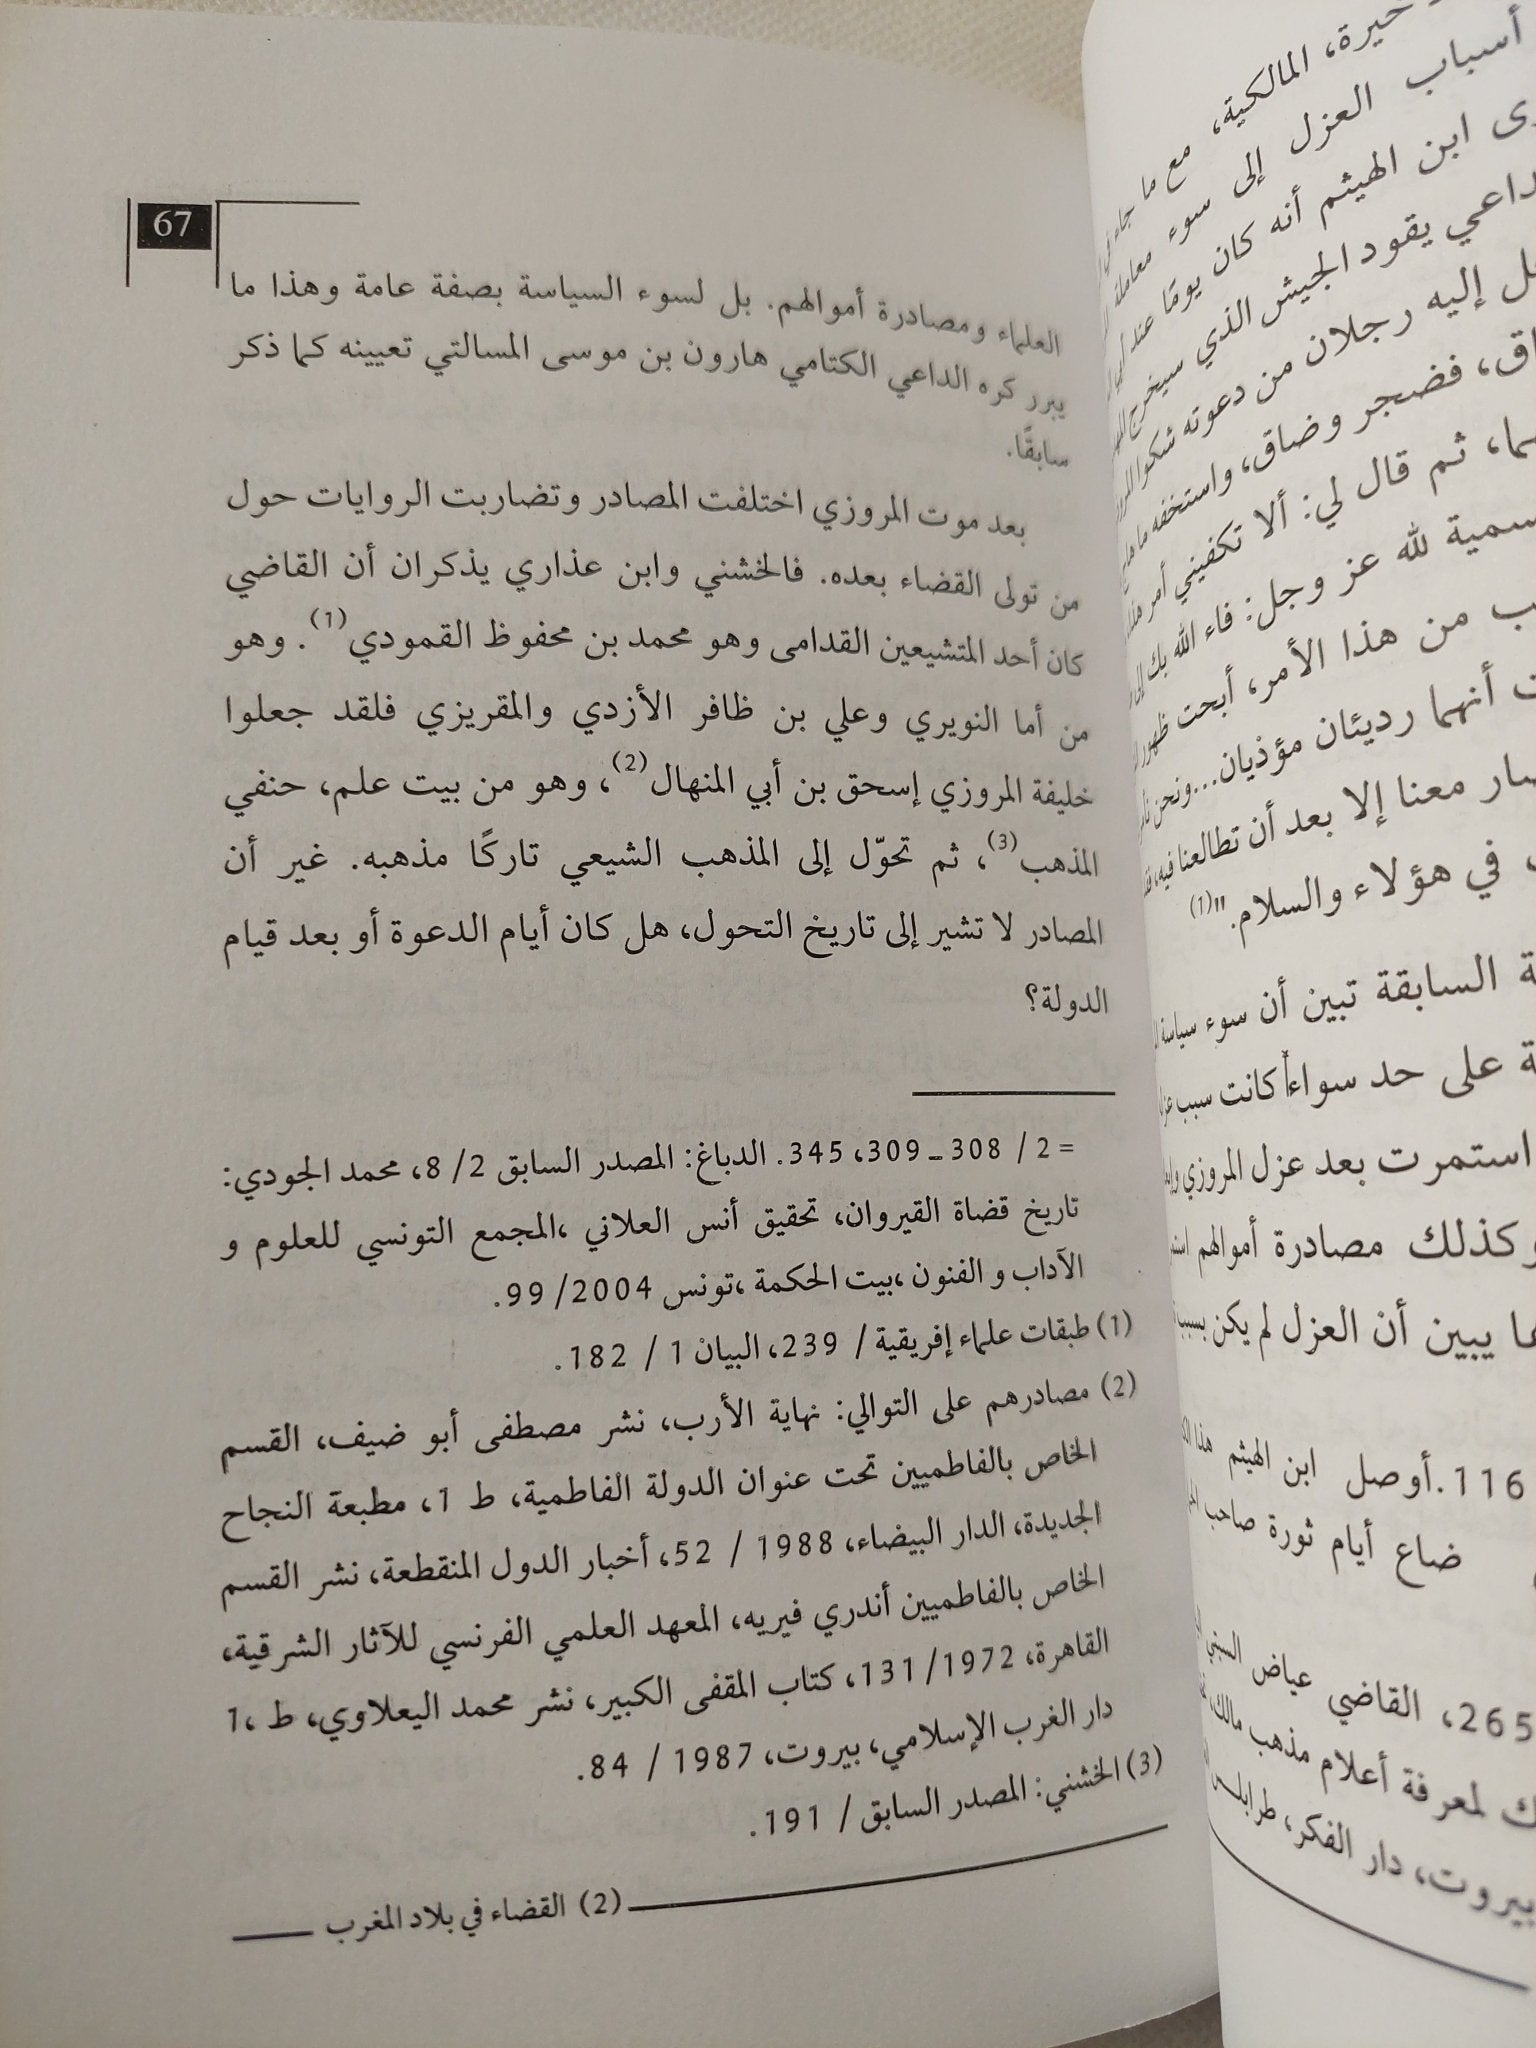 67
العلماء ومصادرة أموالهم. بل لسوء السياسة بصفة عامة وهذا ما
يبرر كره الداعي الكتامي هارون بن موسى المسالتي تعيينه كما ذكر
سابقًا.
بعد موت المروزي اختلفت المصادر وتضاربت الروايات حول
من تولى القضاء بعده. فالخشني وابن عذاري يذكران أن القاضي
كان أحد المتشيعين القدامى وهو محمد بن محفوظ القمودي(1). وهو
من أما النويري وعلي بن ظافر الأزدي والمقريزي فلقد جعلوا
خليفة المروزي إسحق بن أبي المنهال(2)، وهو من بيت علم، حنفي
المذهب(3)، ثم تحوّل إلى المذهب الشيعي تاركًا مذهبه. غير أن
المصادر لا تشير إلى تاريخ التحول، هل كان أيام الدعوة أو بعد قيام
الدولة؟
= 2 / 308 ـ 309، 345. الدباغ: المصدر السابق 2/ 8، محمد الجودي:
تاريخ قضاة القيروان، تحقيق أنس العلاني ،المجمع التونسي للعلوم و
الآداب و الفنون ،بيت الحكمة ،تونس 2004/ 99.
(1) طبقات علماء إفريقية / 239، البيان 1 / 182.
(2) مصادرهم على التوالي: نهاية الأرب، نشر مصطفى أبو ضيف، القسم
الخاص بالفاطميين تحت عنوان الدولة الفاطمية، ط 1، مطبعة النجاح
الجديدة، الدار البيضاء، 1988 / 52، أخبار الدول المنقطعة، نشر القسم
الخاص بالفاطميين أندري فيريه، المعهد العلمي الفرنسي للآثار الشرقية،
القاهرة، 1972/ 131، كتاب المقفى الكبير، نشر محمد اليعلاوي، ط 1،
دار الغرب الإسلامي، بيروت، 1987 / 84.
(3) الخشني: المصدر السابق / 191.
(2) القضاء في بلاد المغرب
حيرة، المالكية، مع ما جاء في
أسباب العزل إلى سوء معاملة
ابن الهيثم أنه كان يومًا عند
يقود الجيش الذي سيخرج
إليه رجلان من دعوته شكوا
فضجر وضاق، واستخفه ما
ثم قال لي: ألا تكفيني أمر
لله عز وجل: فاء الله بك إلى
من هذا الأمر، أبحت ظهور
أنهما رديئان مؤذيان...ونحن
معنا إلا بعد أن تطالعنا فيه،
في هؤلاء والسلام."(1)
السابقة تبين أن سوء سياسة
على حد سواءأ كانت سبب
استمرت بعد عزل المروزي
وكذلك مصادرة أموالهم
يبين أن العزل لم يكن بسبب
116.أوصل ابن الهيثم هذا
ضاع أيام ثورة صاحب
265، القاضي عياض السبتي
لمعرفة أعلام مذهب مالك،
بيروت، دار الفكر، طرابلس